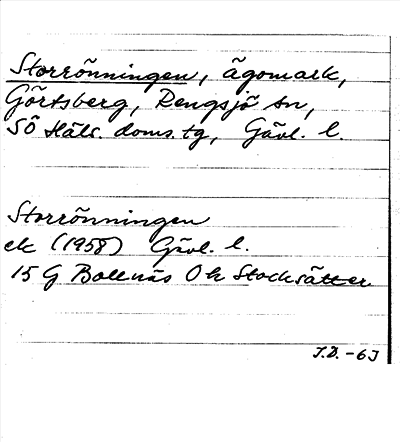 Storrönningen, ägomark,
Görtsberg, Rengsjö sn,
Sö Häls. doms.tg, Gävl. l.
Storrönningen
ek (1958) Gävl. l.
15 G Bollnäs Oh Stocksätter
J.D. -63